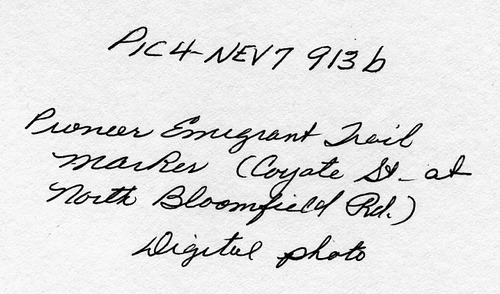 PIC4-NEV7 913b
Pioneer Emigrant Trail
Marker (Coyate St - at
North Bloomfield Rd.)
Digital photo